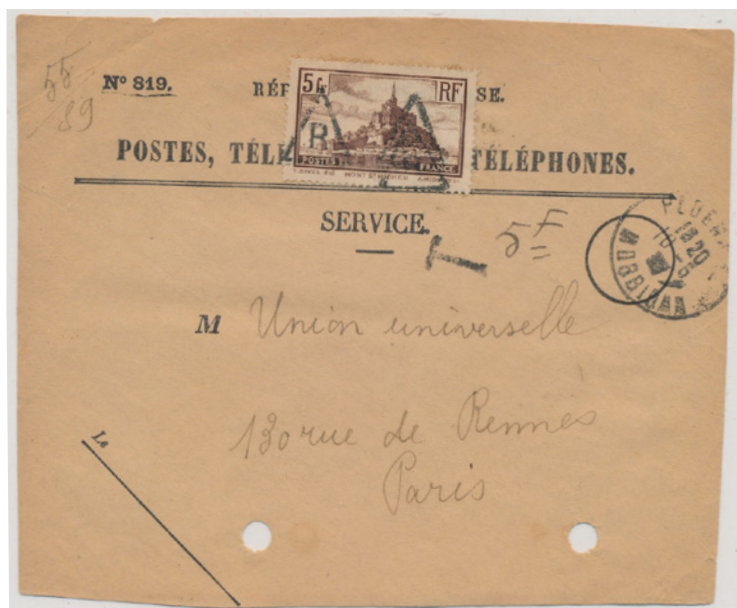 55
89
Nº 819.
RÉP SE.
5 fr RF
R
POSTES FRANCE
POSTES, TÉLÉ TÉLÉPHONES.
SERVICE.
T 5 F
18 20
MORBIHAN
M Union universelle
130 rue de Rennes
Paris
Le